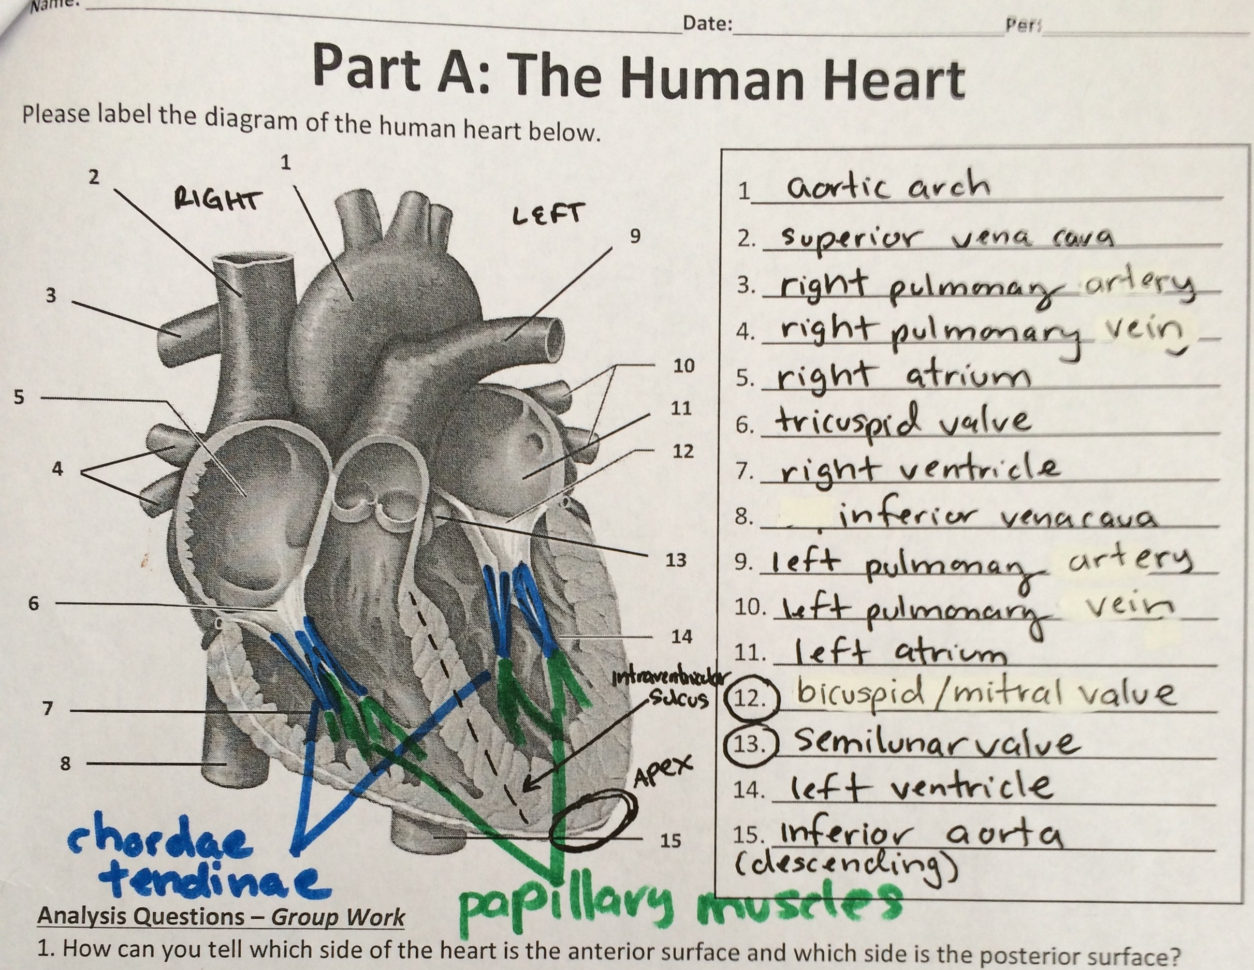 Name:
Date: Per:
Part A: The Human Heart
Please label the diagram of the human heart below.
1
2
RIGHT
LEFT
9
3
10
5
11
12
4
13
6
14
intraventricular
sucus
7
8
APEX
15
chordae
tendinae
papillary muscles
1 aortic arch
2. superior vena cava
3. right pulmonary artery
4. right pulmonary vein
5. right atrium
6. tricuspid valve
7. right ventricle
8. inferior vena cava
9. left pulmonary artery
10. left pulmonary vein
11. left atrium
12. bicuspid/mitral valve
13. semilunar valve
14. left ventricle
15. inferior aorta
(descending)
Analysis Questions – Group Work
1. How can you tell which side of the heart is the anterior surface and which side is the posterior surface?